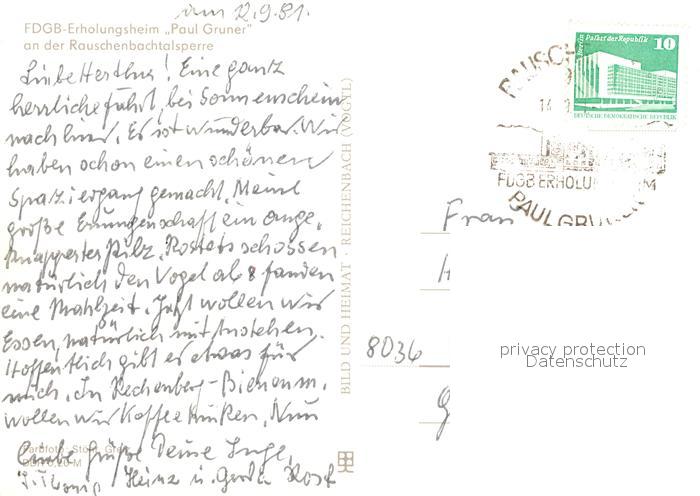 am 12.9.81.
FDGB-Erholungsheim „Paul Gruner"
an der Rauschenbachtalsperre
Liebe Herthus! Eine ganz
herrliche Fahrt, bei Sonnenschein
nach hier. Es ist wunderbar. Wir
haben schon einen schönen
Spaziergang gemacht. Meine
große Errungenschaft ein ange-
knapperter Pilz. Rosters schossen
natürlich den Vogel ab & fanden
eine Mahlzeit. Jetzt wollen wir
Essen, natürlich mit Anstehen.
Hoffentlich gibt es etwas für
mich. In Rechenberg-Bienenm.
wollen wir Kaffee trinken. Nun
Liebe Grüße Deine Inge,
Heinz u. Gerda Rost
DDR 0,20 M
BILD UND HEIMAT · REICHENBACH (VOGTL)
Berlin Palast der Republik
10
DEUTSCHE DEMOKRATISCHE REPUBLIK
RAUSCH
FDGB ERHOLU M
PAUL GRU
Frau
8036
privacy protection
Datenschutz